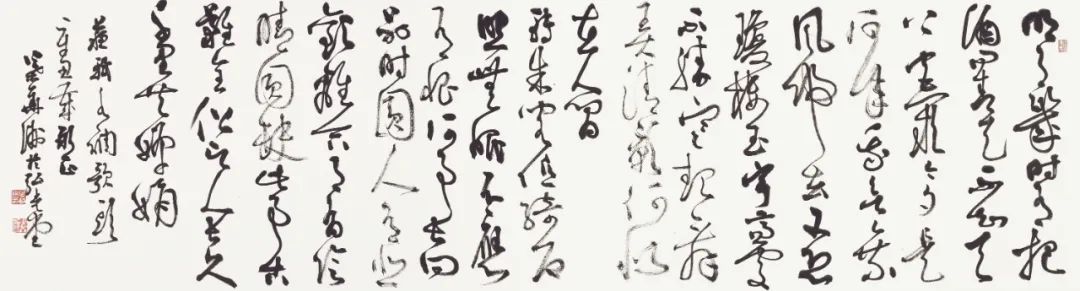 明月几时有把
酒问青天不知天
上宫阙今夕是
何年我欲乘
风归去又恐
琼楼玉宇高处
不胜寒起舞
弄清影何似
在人间
转朱阁低绮户
照无眠不应
有恨何事长向
别时圆人有悲
欢离合月有阴
晴圆缺此事古
难全但愿人长久
千里共婵娟
苏轼水调歌头
辛丑